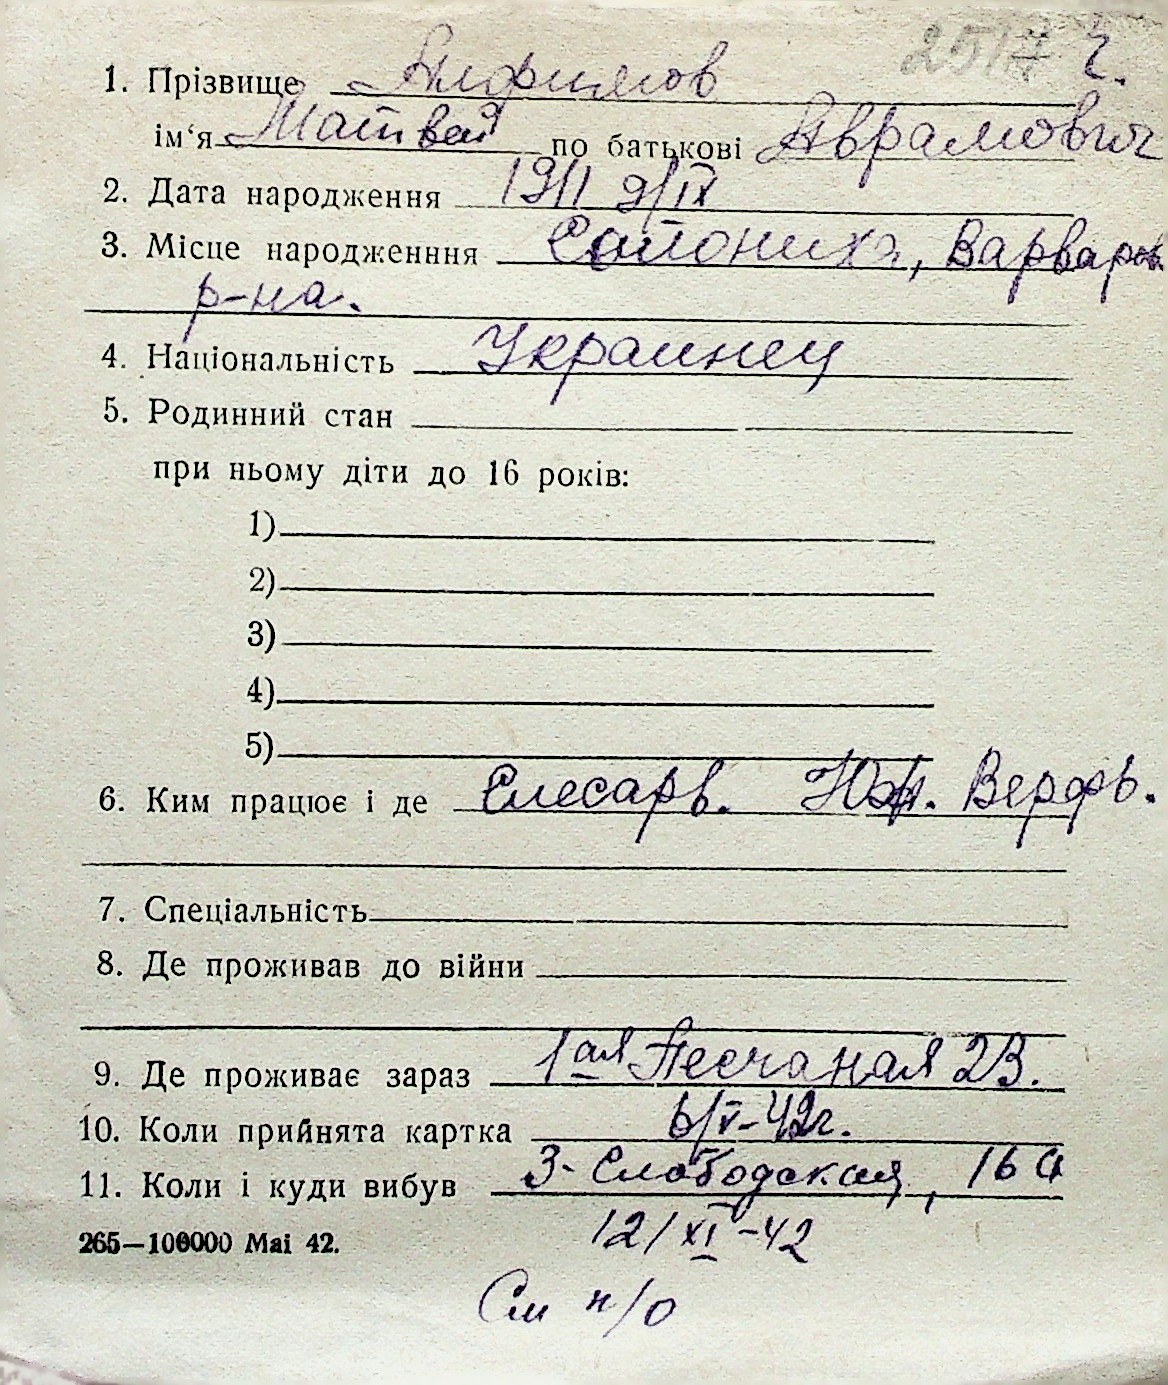 2517 2.
1. Прізвище Анфимов
ім‘я Матвей по батькові Аврамович
2. Дата народження 1911 9/IX
3. Місце народженння Сапониха, Варваров.
р-на.
4. Національність Украинец
5. Родинний стан
при ньому діти до 16 років:
1)
2)
3)
4)
5)
6. Ким працює і де Слесарь. Юж. Верфь.
7. Спеціальність
8. Де проживав до війни
9. Де проживає зараз 1ая Песчаная 23.
10. Коли прийнята картка 6/V-42г.
11. Коли і куди вибув 3-Слободская, 16 а
265—100000 Mai 42. 12/XI-42
См н/о